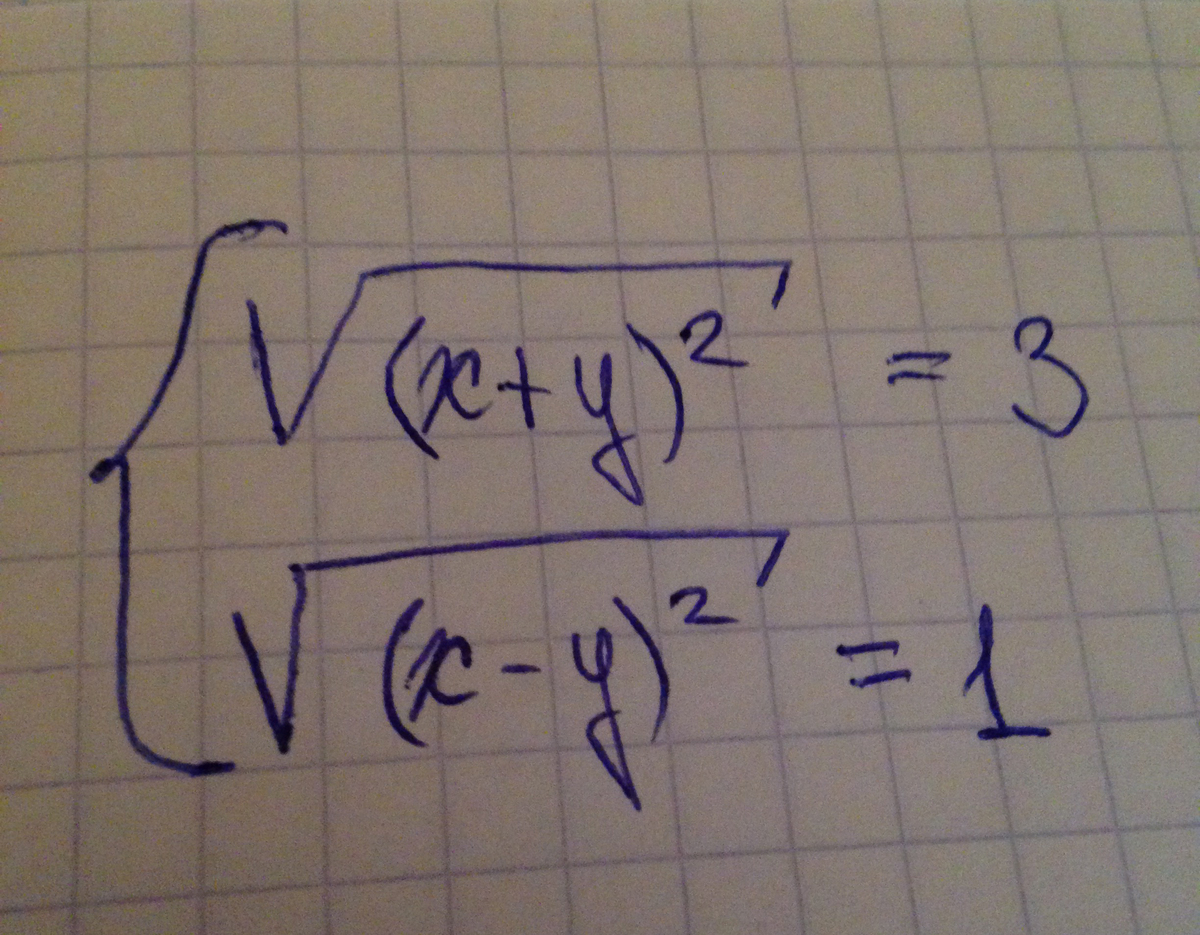 √(x+y)² = 3
√(x-y)² = 1